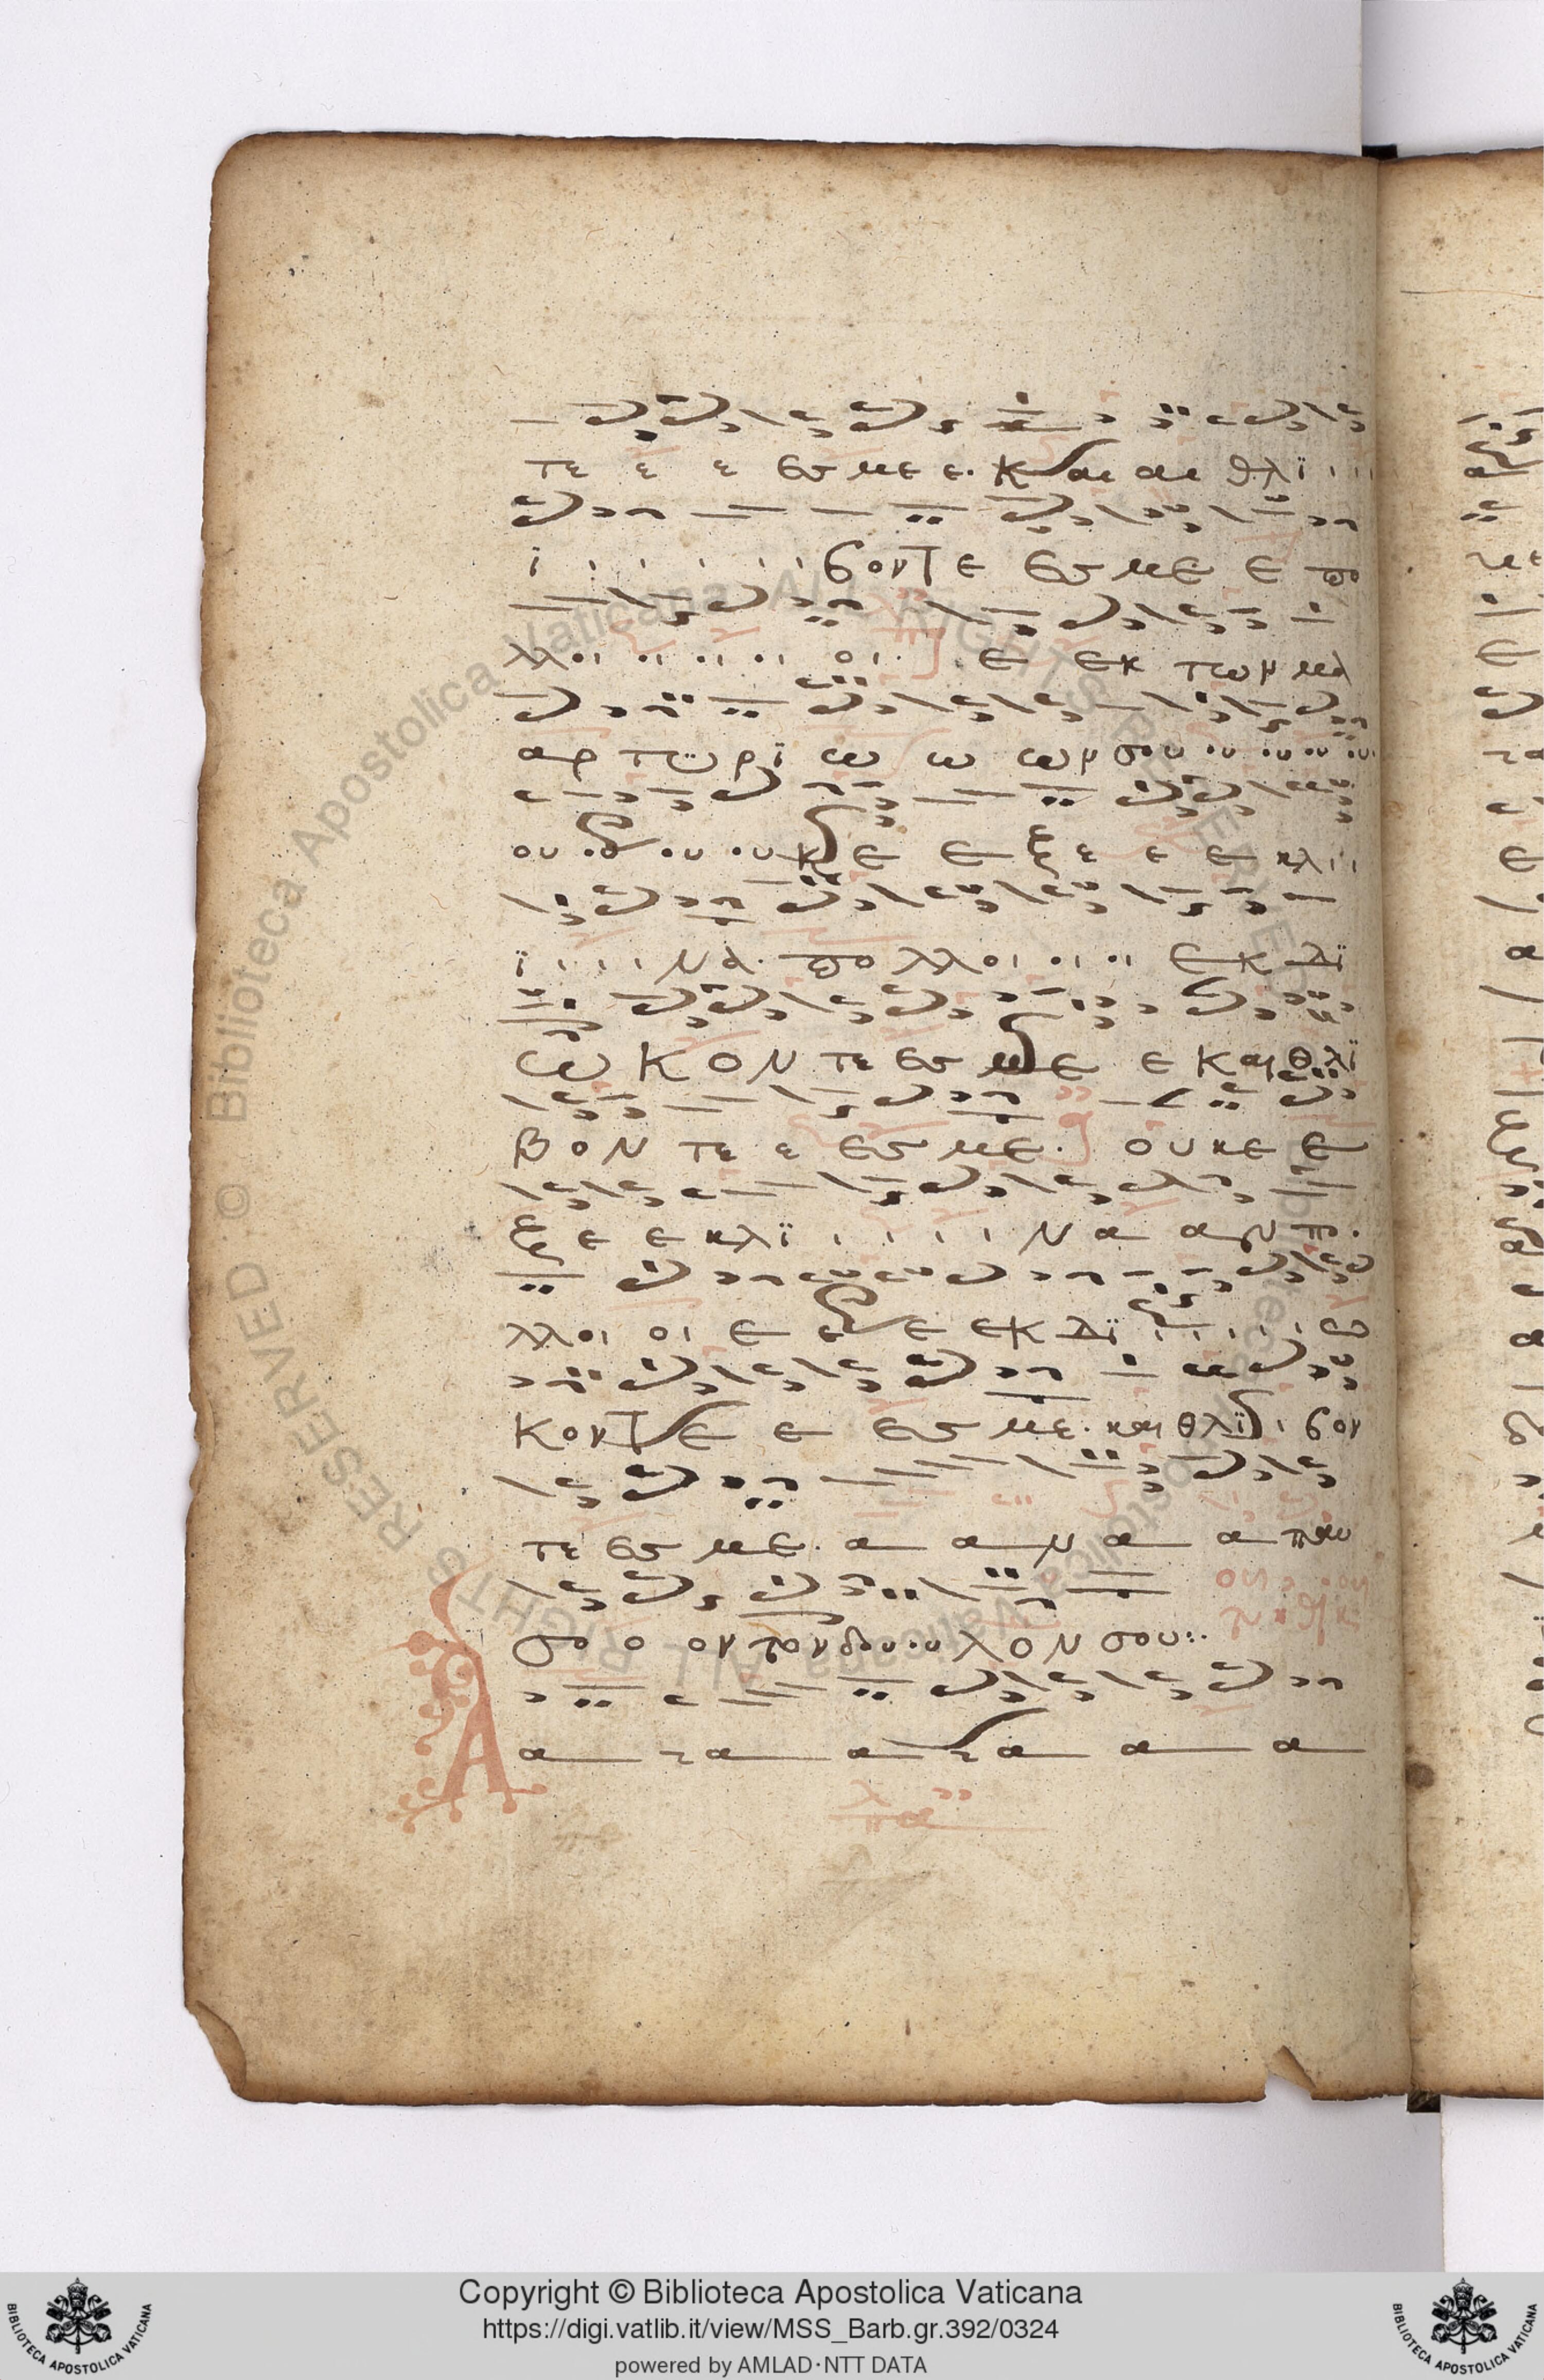 τε ε ε ες με ε. κ αι αι θλι ι ι ι
ι ι ι ι ι ι ι βοντε ες με ε πο
λλοι οι οι οι οι. ε εκ των μα
αρ τυ ρι ω ω ων σου ου ου ου ου
ου ου ου ουκ ε ε ξε ε ε ε κλι ι ι
ι ι ι ι να. πο λλοι οι οι ε κ δι
ω κον τε ες με ε ε και θλι
βον τε ε ες με. ουκ ε ε
ξε ε ε κλι ι ι ι ι ι να α αν πο.
λλοι οι ε ε ε εκ δι ι ι ι ι ι ω
κοντε ε ε ες με. και θλι ι βον
τε ες με. α α ν α α πω
σο ο ον τον δου ου λον σου:.
Α α γα α γα α α
Copyright © Biblioteca Apostolica Vaticana
https://digi.vatlib.it/view/MSS_Barb.gr.392/0324
powered by AMLAD·NTT DATA
BIBLIOTECA APOSTOLICA VATICANA
BIBLIOTECA APOSTOLICA VATICANA
Biblioteca Apostolica Vaticana ALL RIGHTS RESERVED ©